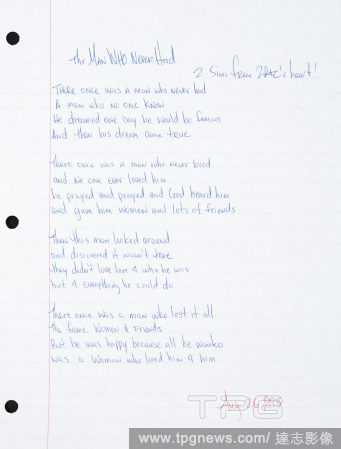 The Man Who Never Had
2 Simi from 2Pac's heart!
There once was a man who never had
A man who no one knew
He dreamed one day he would be famous
And then his dream came true
There once was a man who never loved
and no one ever loved him
he prayed and prayed and God heard him
and gave him women and lots of friends
Then this man looked around
and discovered it wasn't true
they didn't love him 4 who he was
but 4 everything he could do
There once was a man who lost it all
The fame Women & Friends
But he was happy because all he wanted
was a woman who loved him 4 him
TPG
www.tpgnews.com/ 達志影像